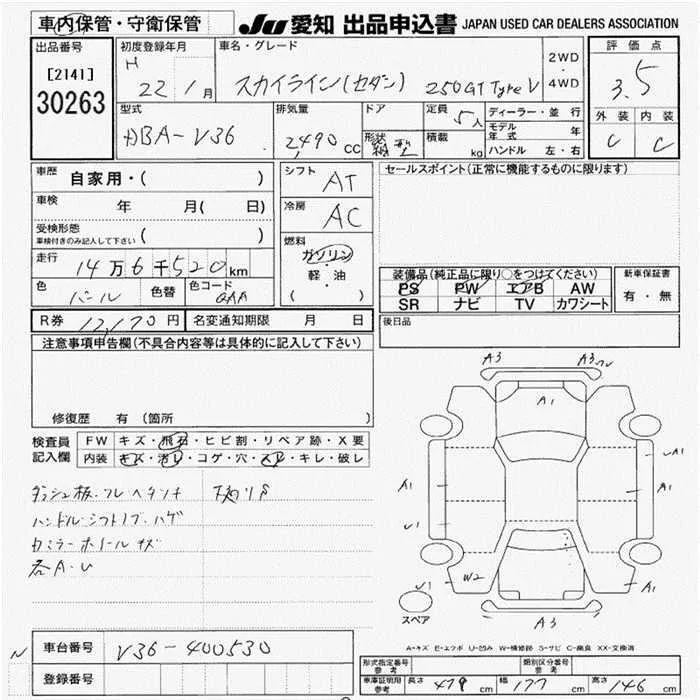 車内保管・守衛保管 JU 愛知 出品申込書 JAPAN USED CAR DEALERS ASSOCIATION
出品番号 初度登録年月 車名・グレード 2WD・4WD 評価点
[2141] H 22 1月 スカイライン(セダン) 250GT Type V 3.5
30263
型式 排気量 ドア 定員 5人 ディーラー・並行 外装 内装
DBA-V36 2,490 cc 形状 積載 kg モデル年式 年 C C
ハンドル 左・右
車歴 自家用・( ) シフト AT セールスポイント(正常に機能するものに限ります)
車検 年 月( 日) 冷房 AC
受検形態 ( )
車検付きのみ記入して下さい
燃料 ガソリン・軽油 ( )
走行 14万6千520km
装備品(純正品に限り○をつけてください) 新車保証書
色 パール 色替 色コード QAA PS PW エアB AW 有・無
SR ナビ TV カワシート
R券 12,170円 名変通知期限 月 日 後日品
注意事項申告欄(不具合内容等は具体的に記入して下さい)
修復歴 有 (箇所 )
A3 A3
A1
検査員 FW キズ・飛石・ヒビ割・リペア跡・X要
記入欄 内装 キズ・汚レ・コゲ・穴・スレ・キレ・破レ
A1 A1 A1
U1
ハンドル・シフトノブ・ハゲ
各A・U
U1 W2 A1
スペア A3
A=キズ E=エクボ U=凹み W=補修跡 S=サビ C=腐食 XX=交換済
N 車台番号 V36-400530
登録番号
形式指定番号 参考 類別区分番号 参考
車庫証明用 参考 長さ 479cm 幅 177cm 高さ 146cm